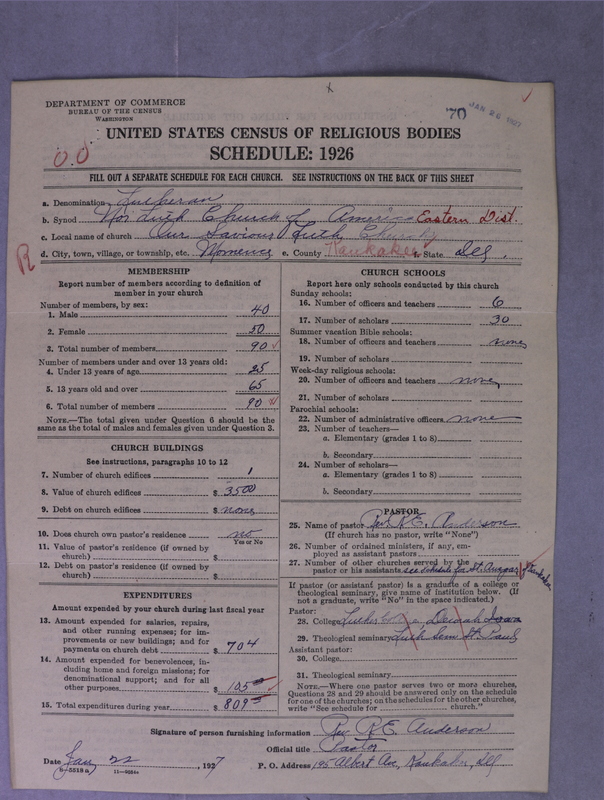 DEPARTMENT OF COMMERCE
BUREAU OF THE CENSUS
WASHINGTON
70 JAN 26 1927
UNITED STATES CENSUS OF RELIGIOUS BODIES
SCHEDULE: 1926
FILL OUT A SEPARATE SCHEDULE FOR EACH CHURCH. SEE INSTRUCTIONS ON THE BACK OF THIS SHEET
a. Denomination Lutheran
b. Synod Nor Luth Church of America Eastern Dist.
c. Local name of church Our Saviours Luth Church
R
d. City, town, village, or township, etc. Momence e. County Kankakee f. State Ill.
MEMBERSHIP
Report number of members according to definition of
member in your church
Number of members, by sex:
1. Male 40
2. Female 50
3. Total number of members 90
Number of members under and over 13 years old:
4. Under 13 years of age 25
5. 13 years old and over 65
6. Total number of members 90
NOTE.—The total given under Question 6 should be
the same as the total of males and females given under Question 3.
CHURCH BUILDINGS
See instructions, paragraphs 10 to 12
7. Number of church edifices 1
8. Value of church edifices $ 3500
9. Debt on church edifices $ none
10. Does church own pastor's residence no
Yes or No
11. Value of pastor's residence (if owned by
church) $
12. Debt on pastor's residence (if owned by
church) $
EXPENDITURES
Amount expended by your church during last fiscal year
13. Amount expended for salaries, repairs,
and other running expenses; for im-
provements or new buildings; and for
payments on church debt $ 704
14. Amount expended for benevolences, in-
cluding home and foreign missions; for
denominational support; and for all
other purposes $ 105
15. Total expenditures during year $ 809
CHURCH SCHOOLS
Report here only schools conducted by this church
Sunday schools:
16. Number of officers and teachers 6
17. Number of scholars 30
Summer vacation Bible schools:
18. Number of officers and teachers none
19. Number of scholars
Week-day religious schools:
20. Number of officers and teachers none
21. Number of scholars
Parochial schools:
22. Number of administrative officers none
23. Number of teachers—
a. Elementary (grades 1 to 8)
b. Secondary
24. Number of scholars—
a. Elementary (grades 1 to 8)
b. Secondary
PASTOR
25. Name of pastor Rev R.E. Anderson
(If church has no pastor, write "None")
26. Number of ordained ministers, if any, em-
ployed as assistant pastors
27. Number of other churches served by the
pastor or his assistants see schedule for St. Kankakee
If pastor (or assistant pastor) is a graduate of a college or
theological seminary, give name of institution below. (If
not a graduate, write "No" in the space indicated.)
Pastor:
28. College Luther College, Decorah Iowa
29. Theological seminary Luth Sem St. Paul
Assistant pastor:
30. College
31. Theological seminary
NOTE.—Where one pastor serves two or more churches,
Questions 28 and 29 should be answered only on the schedule
for one of the churches; on the schedules for the other churches,
write "See schedule for church."
Signature of person furnishing information Rev R.E. Anderson
Official title Pastor
Date Jan 22, 1927 P. O. Address 195 Albert Av, Kankakee, Ill